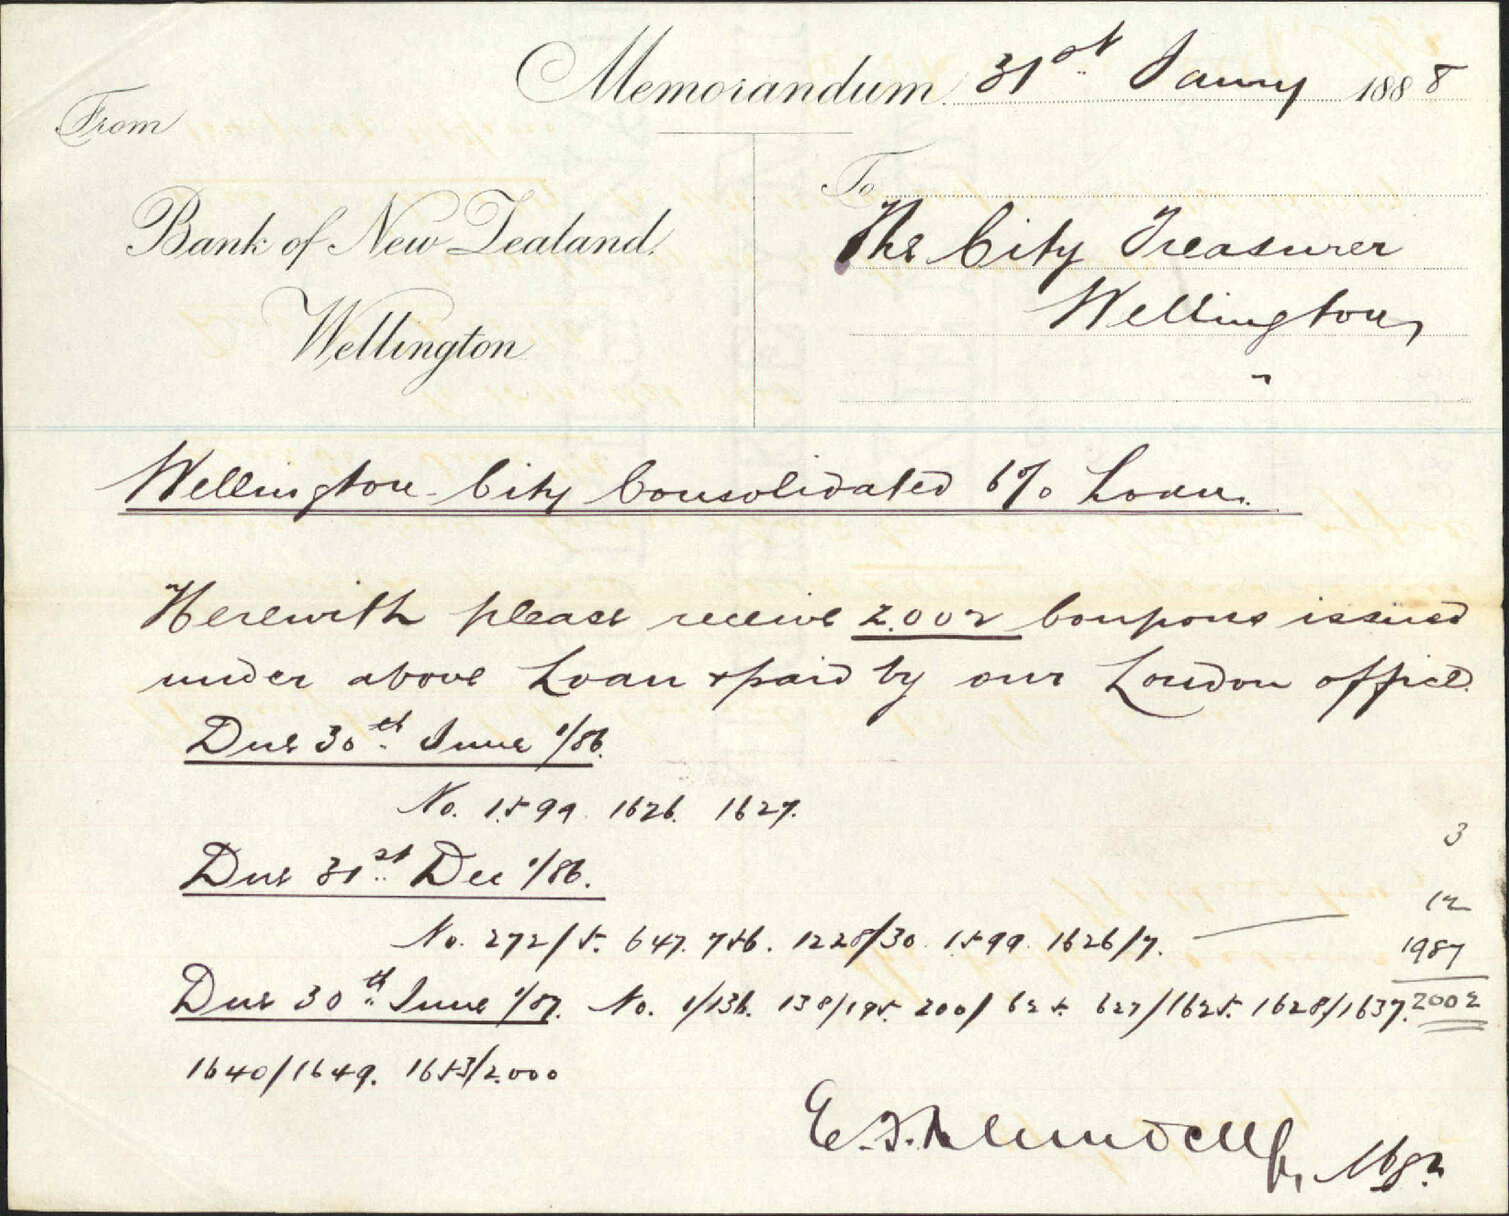 Memorandum. 31st Janry 1888
From
Bank of New Zealand.
Wellington
To
The City Treasurer
Wellington,
Wellington City Consolidated 6% Loan.
Herewith please receive 2.002 Coupons issued
under above Loan & paid by our London office.
Due 30th June 1/86.
No. 1599. 1626. 1627.
3
Due 31st Dec 1/86.
12
No. 272/5. 647. 756. 1228/30. 1599. 1626/7.
1987
Due 30th June 1/87. No. 1/136. 138/195. 200/625. 627/1625. 1628/1637. 2002
1640/1649. 1653/2.000
Mgr.